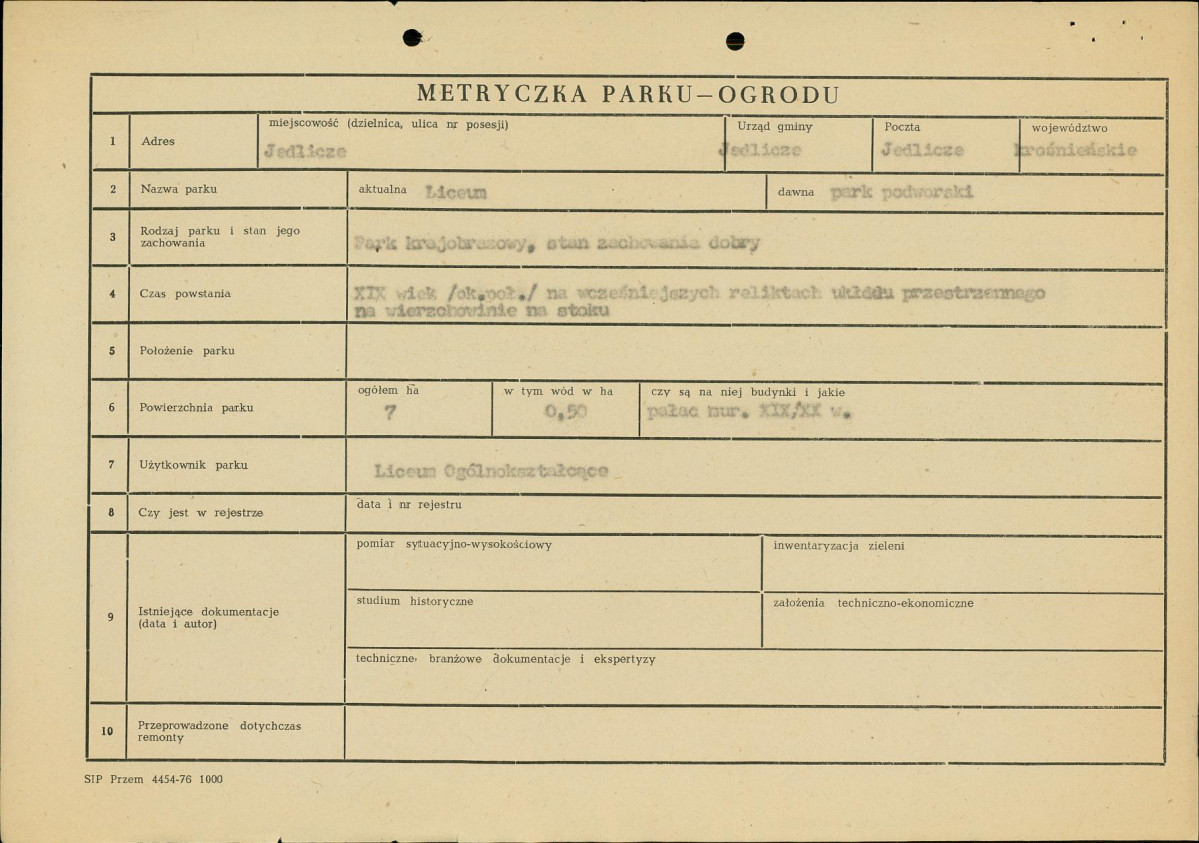 METRYCZKA PARKU—OGRODU
1 Adres miejscowość (dzielnica, ulica nr posesji) Urząd gminy Poczta województwo
Jedlicze Jedlicze Jedlicze krośnieńskie
2 Nazwa parku aktualna Liceum dawna park podworski
3 Rodzaj parku i stan jego
zachowania
Park krajobrazowy, stan zachowania dobry
4 Czas powstania
XIX wiek /ok.poł./ na wcześniejszych reliktach ukłddu przestrzennego
na wierzchowinie na stoku
5 Położenie parku
6 Powierzchnia parku ogółem ha w tym wód w ha czy są na niej budynki i jakie
7 0,50 pałac mur. XIX/XX w.
7 Użytkownik parku Liceum Ogólnokształcące
8 Czy jest w rejestrze data i nr rejestru
9 Istniejące dokumentacje
(data i autor)
pomiar sytuacyjno-wysokościowy inwentaryzacja zieleni
studium historyczne założenia techniczno-ekonomiczne
techniczne, branżowe dokumentacje i ekspertyzy
10 Przeprowadzone dotychczas
remonty
SIP Przem 4454-76 1000